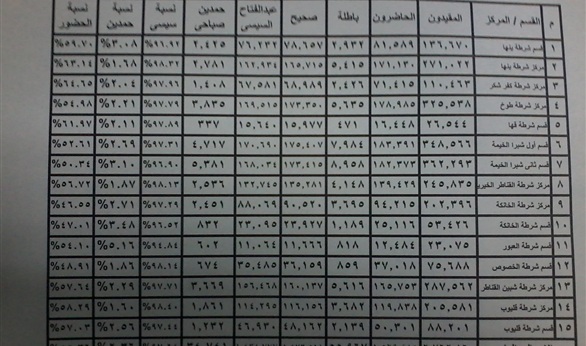 م القسم / المركز المقيدون الحاضرون باطلة صحيح عبدالفتاح السيسى حمدين صباحى نسبة سيسى نسبة حمدين نسبة الحضور
١ قسم شرطة بنها ١٣٦,٦٧٠ ٨١,٥٨٩ ٢,٩٣٢ ٧٨,٦٥٧ ٧٦,٢٣٢ ٢,٤٢٥ %٩٦,٩٢ %٣,٠٨ %٥٩,٧٠
٢ مركز شرطة بنها ٢٧١,٠٢٢ ١٧١,١٣٠ ٥,٤١٥ ١٦٥,٧١٥ ١٦٢,٩٣٤ ٢,٧٨١ %٩٨,٣٢ %١,٦٨ %٦٣,١٤
٣ مركز شرطة كفر شكر ١١٠,٤٦٣ ٧١,٤١٥ ٢,٤٢٦ ٦٨,٩٨٩ ٦٧,٥٨١ ١,٤٠٨ %٩٧,٩٦ %٢,٠٤ %٦٤,٦٥
٤ مركز شرطة طوخ ٣٢٥,٥٣٨ ١٧٨,٩٨٥ ٥,٦٣٥ ١٧٣,٣٥٠ ١٦٩,٥١٥ ٣,٨٣٥ %٩٧,٧٩ %٢,٢١ %٥٤,٩٨
٥ قسم شرطة قها ٢٦,٥٤٤ ١٦,٤٤٨ ٤٧١ ١٥,٩٧٧ ١٥,٦٤٠ ٣٣٧ %٩٧,٨٩ %٢,١١ %٦١,٩٧
٦ قسم أول شبرا الخيمة ٣٤٨,٥٦٦ ١٨٣,٣٩١ ٧,٩٨٤ ١٧٥,٤٠٧ ١٧٠,٦٩٠ ٤,٧١٧ %٩٧,٣١ %٢,٦٩ %٥٢,٦١
٧ قسم ثانى شبرا الخيمة ٣٦٢,٢٩٣ ١٨٢,٣٧٣ ٨,٩٥٨ ١٧٣,٤١٥ ١٦٨,٠٣٤ ٥,٣٨١ %٩٦,٩٠ %٣,١٠ %٥٠,٣٤
٨ مركز شرطة القناطر الخيرية ٢٤٥,٨٣٥ ١٣٩,٤٢٩ ٤,١٤٨ ١٣٥,٢٨١ ١٣٢,٧٤٥ ٢,٥٣٦ %٩٨,١٣ %١,٨٧ %٥٦,٧٢
٩ مركز شرطة الخانكة ٢٠٢,٣٩٦ ٩٤,٢١٥ ٣,٦٩٥ ٩٠,٥٢٠ ٨٨,٠٦٩ ٢,٤٥١ %٩٧,٢٩ %٢,٧١ %٤٦,٥٥
١٠ قسم شرطة الخانكة ٥٣,٤٢٦ ٢٥,١١٦ ١,١٨٩ ٢٣,٩٢٧ ٢٣,٠٩٥ ٨٣٢ %٩٦,٥٢ %٣,٤٨ %٤٧,٠١
١١ قسم شرطة العبور ٢٣,٠٧٥ ١٢,٤٨٤ ٨١٨ ١١,٦٦٦ ١١,٠٦٤ ٦٠٢ %٩٤,٨٤ %٥,١٦ %٥٤,١٠
١٢ قسم شرطة الخصوص ٧٥,٦٨٨ ٣٧,٠١٨ ٨٥٩ ٣٦,١٥٩ ٣٥,٤٨٥ ٦٧٤ %٩٨,١٤ %١,٨٦ %٤٨,٩١
١٣ مركز شرطة شبين القناطر ٢٨٧,٥٦٢ ١٦٥,٧٥٣ ٥,٦١٦ ١٦٠,١٣٧ ١٥٦,٤٦٨ ٣,٦٦٩ %٩٧,٧١ %٢,٢٩ %٥٧,٦٤
١٤ مركز شرطة قليوب ٢٠٥,٥٨١ ١١٩,٨٣٨ ٣,٦٨٢ ١١٦,١٥٦ ١١٤,٢٩٥ ١,٨٦١ %٩٨,٤٠ %١,٦٠ %٥٨,٢٩
١٥ قسم شرطة قليوب ٨٨,٢٠١ ٥٠,٣٠١ ٢,١٣٩ ٤٨,١٦٢ ٤٦,٩٣٠ ١,٢٣٢ %٩٧,٤٤ %٢,٥٦ %٥٧,٠٣